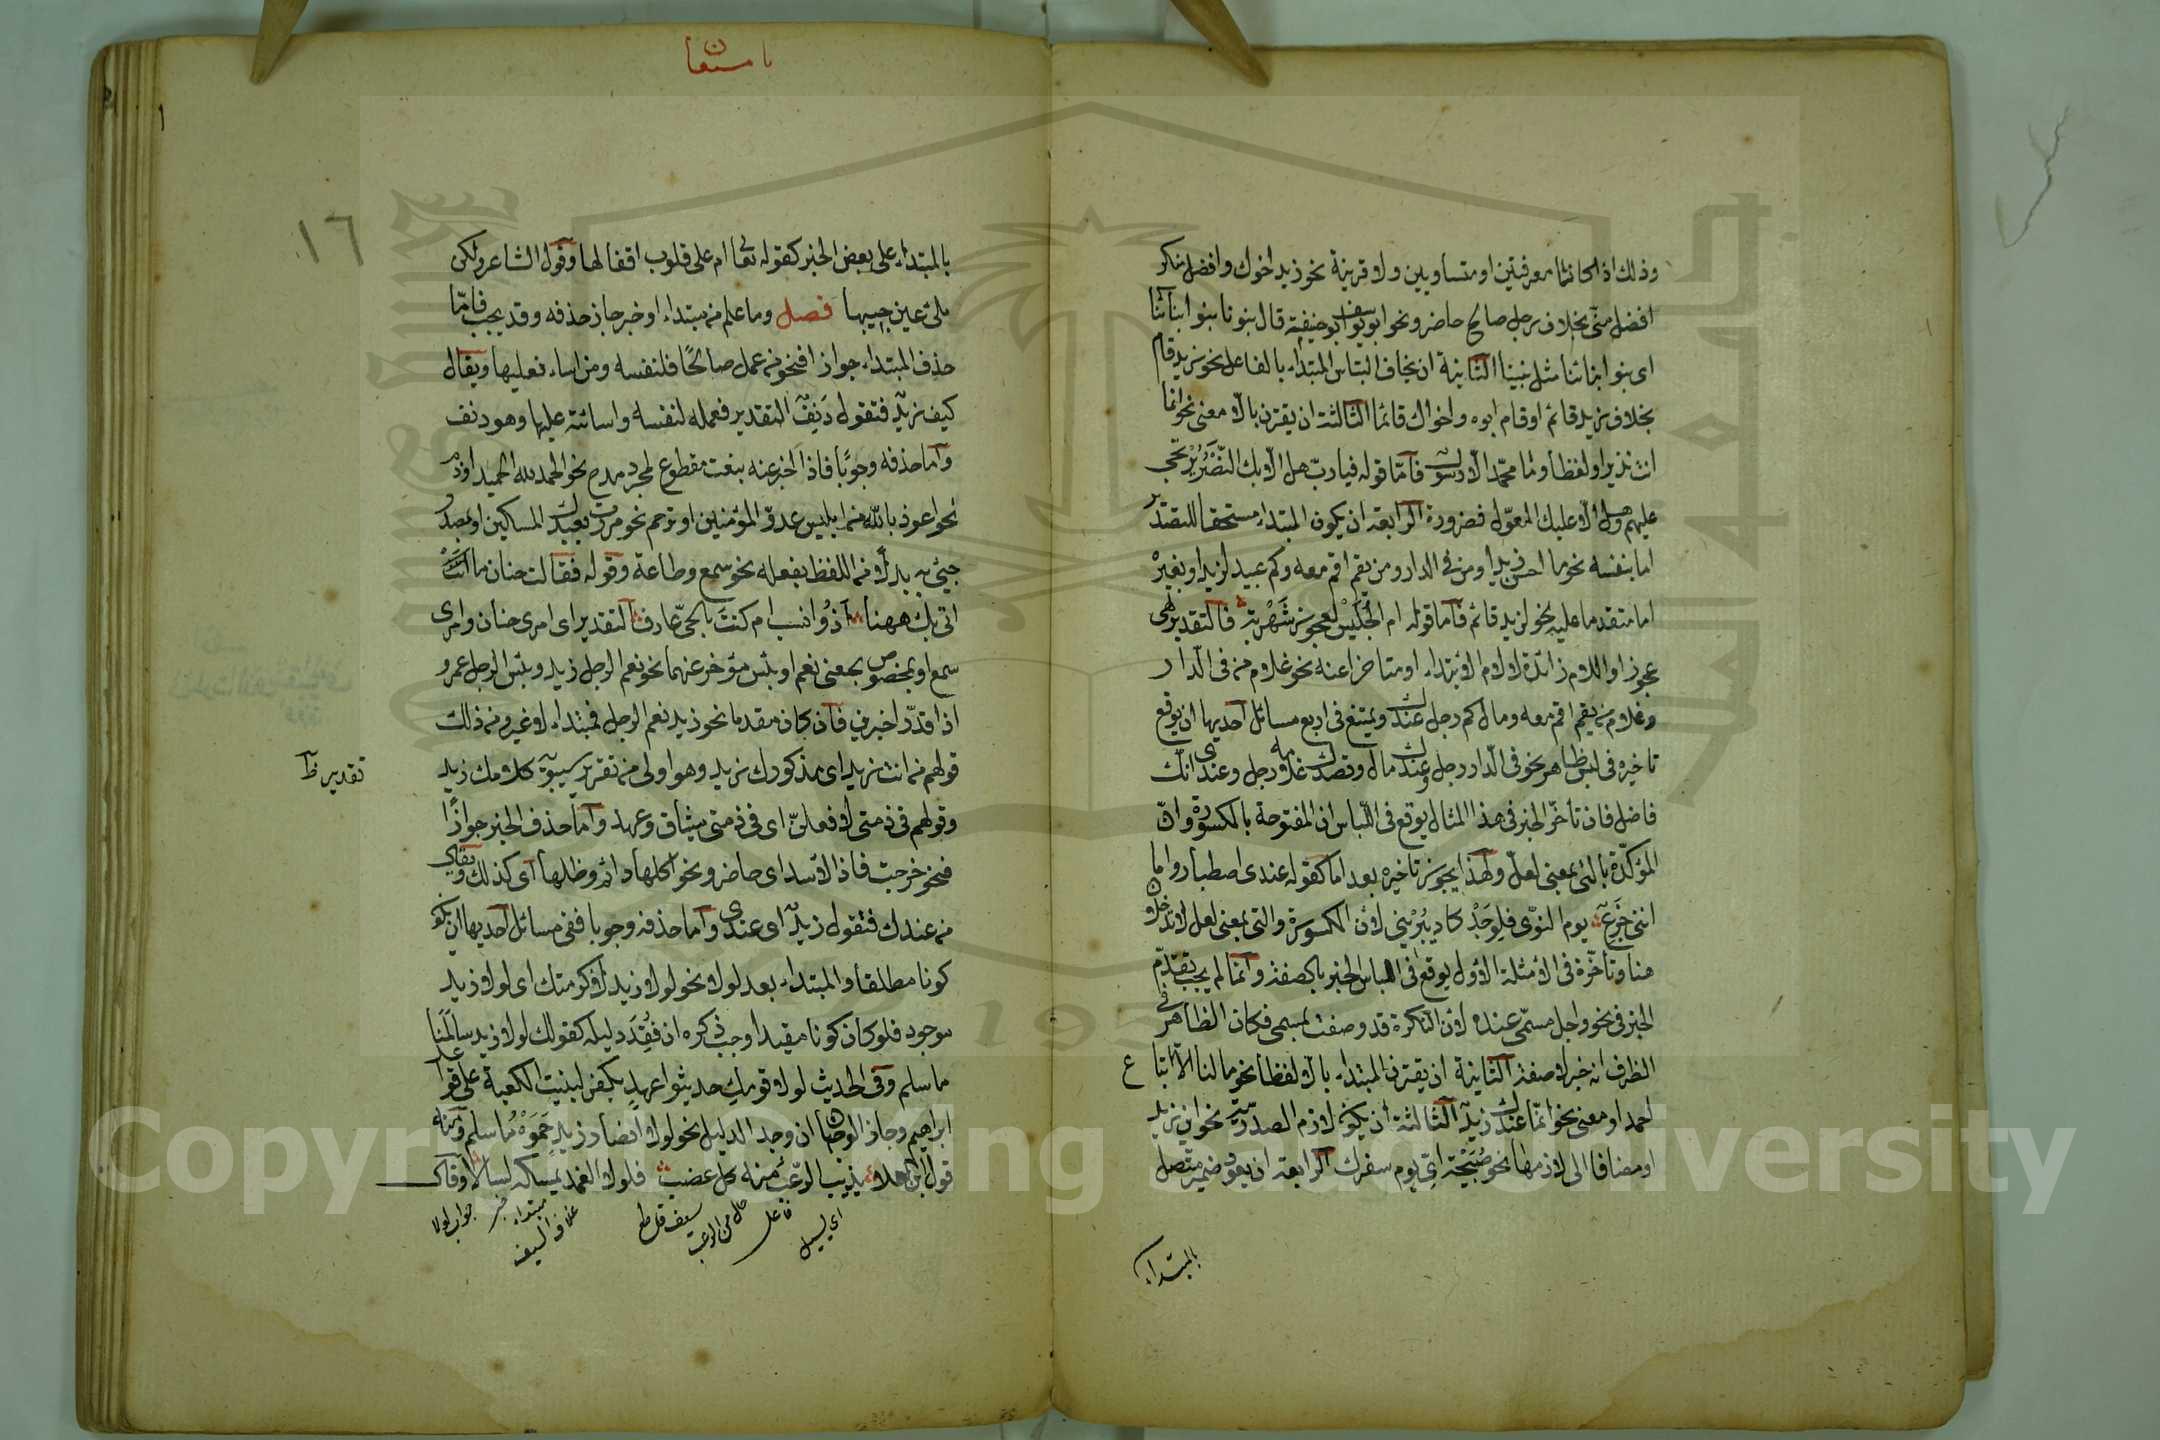 وذلك اذا كانتا معرفتين او متساويين ولا قرينة نحو زيد اخوك وافضل منك
افضل منّي بخلاف رجل صالح حاضر ونحو ابو يوسف ابو حنيفة قال بنونا بنوا ابنائنا
اى بنو ابنائنا مثل بنينا الثانية ان يخاف التباس المبتداء بالفاعل نحو زيد قام
بخلاف زيد قائم او قام ابوه واخواك قائما الثالثة ان يقترن بالا معنى نحو انما
انت نذير او لفظا وما محمّد الا رسول فأمّا قوله فيا ربّ هل الا بك النَّصْرُ يرتجى
عليهم وهل الا عليك المعوّل فضرورة الرابعة ان يكون المبتداء مستحقا للتصدير
اما بنفسه نحو ما احسن زيدا ومن في الدار ومن يقم اقم معه وكم عبيد لزيد او بغيره
اما متقدما عليه نحو لزيد قائم فأما قوله ام الحُلَيْس لعجوز شَهْرَبَة فالتقدير لهي
عجوز او اللام زائدة لا لام الابتداء او متاخرا عنه نحو غلام من في الدار
وغلام من يقم اقم معه ومال كم رجل عندك ويمتنع في اربع مسائل احديها ان يوقع
تاخيره في لبس ظاهر نحو في الدار رجل وعندك مال وقصدك غلامه رجل وعندى انك
فاضل فان تأخّر الخبر في هذا المثال يوقع في التباس ان المفتوحة بالمكسورة وانّ
المؤكّدة بالتى بمعنى لعلّ ولهذا يجوز تاخيره بعد اما كقوله عندى اصطبار واما
اننى جَزِعٌ يوم النوّى فلِوَجْدٍ كاد يَبْرِيني لان المكسورة والتى بمعنى لعل لا تدخلان
هنا وتأخّره في الامثلة الاوّل يوقع في التباس الخبر بالصفة وانما لم يجب تقدّم
الخبر في نحو واجل مسمّى عنده لان النكرة قد وصفت بمسمى فكان الظاهر في
الظرف انه خبر لا صفة الثانية ان يقترن المبتداء بالا لفظا نحو ما لنا الا اتباع
احمد او معنى نحو انّما عندك زيدٌ الثالثة ان يكون لازم الصدريّة نحو اين زيد
او مضافا الى لازمها نحو صَبِيْحَةَ ايّ يوم سفرك الرابعة ان يعود ضمير متصل
بالمبتداء
١٦
بالمبتداء على بعض الخبر كقوله تعا ام على قلوب اقفالها وقول الشاعر ولكن
ملئ عين حبيبها فصل وما علم من مبتداء او خبر جاز حذفه وقد يجب فامّا
حذف المبتداء جوازا فنحو من عمل صالحًا فلنفسه ومن اساء فعليها ويقال
كيف زيدٌ فتقول دَنِفٌ التقدير فعمله لنفسه واسائته عليها وهو دنف
وأما حذفه وجوبًا فاذا اخبر عنه بنعت مقطوع لمجرد مدح نحو الحمد لله الحميد او ذم
نحو اعوذ بالله من ابليس عدوّ المؤمنين او ترحم نحو مررت بعبدك المسكين او بمصدر
جيئ به بدلًا من اللفظ بفعله نحو سمع وطاعة وقوله فقالت حنان ما
اتى بك ههنا أذو نسب ام كنت بالحىّ عارف التقدير اى امرى حنان وامرى
سمع او بمخصوص بمعنى نعم او بئس مؤخر عنهما نحو نعم الرجل زيد وبئس الرجل عمرو
اذا قدّرا خبرين فأن كان مقدما نحو زيد نعم الرجل فمبتداء لا غير ومن ذلك
قولهم من انت زيد اى مذكورك زيد وهو اولى من تقرير سيبويه كلامك زيد
تقدير ظ
وقولهم في ذمتى لافعلنّ اى في ذمتى ميثاق وعهد وأما حذف الخبر جوازًا
فنحو خرجت فاذا الاسد اى حاضر ونحو اكلها دائم وظلها اى كذلك ويقال
من عندك فتقول زيدٌ اى عندى وأما حذفه وجوبا ففي مسائل احديها ان يكون
كونا مطلقا والمبتداء بعد لولا نحو لولا زيد لاكرمتك اى لولا زيد
موجود فلو كان كونا مقيدا وجب ذكره ان فُقِدَ دليله كقولك لولا زيد سالَمَنا
ما سلم وفي الحديث لولا قومك حديثوا عهدٍ بكفر لبنيت الكعبة على قواعد
ابراهيم وجاز الوجهان ان وجد الدليل نحو لولا انصار زيد حَمَوْهُ ما سلم ومنه
قول ابي العلاء يذيب الرّعب منه كل عضب فلولا الغمد يمسكه لسالا وقال
اى يسيل
فاعل
حال من الرعب
سيف قاطع
غلاف السيف
مبتداء
خبر
جواب لولا